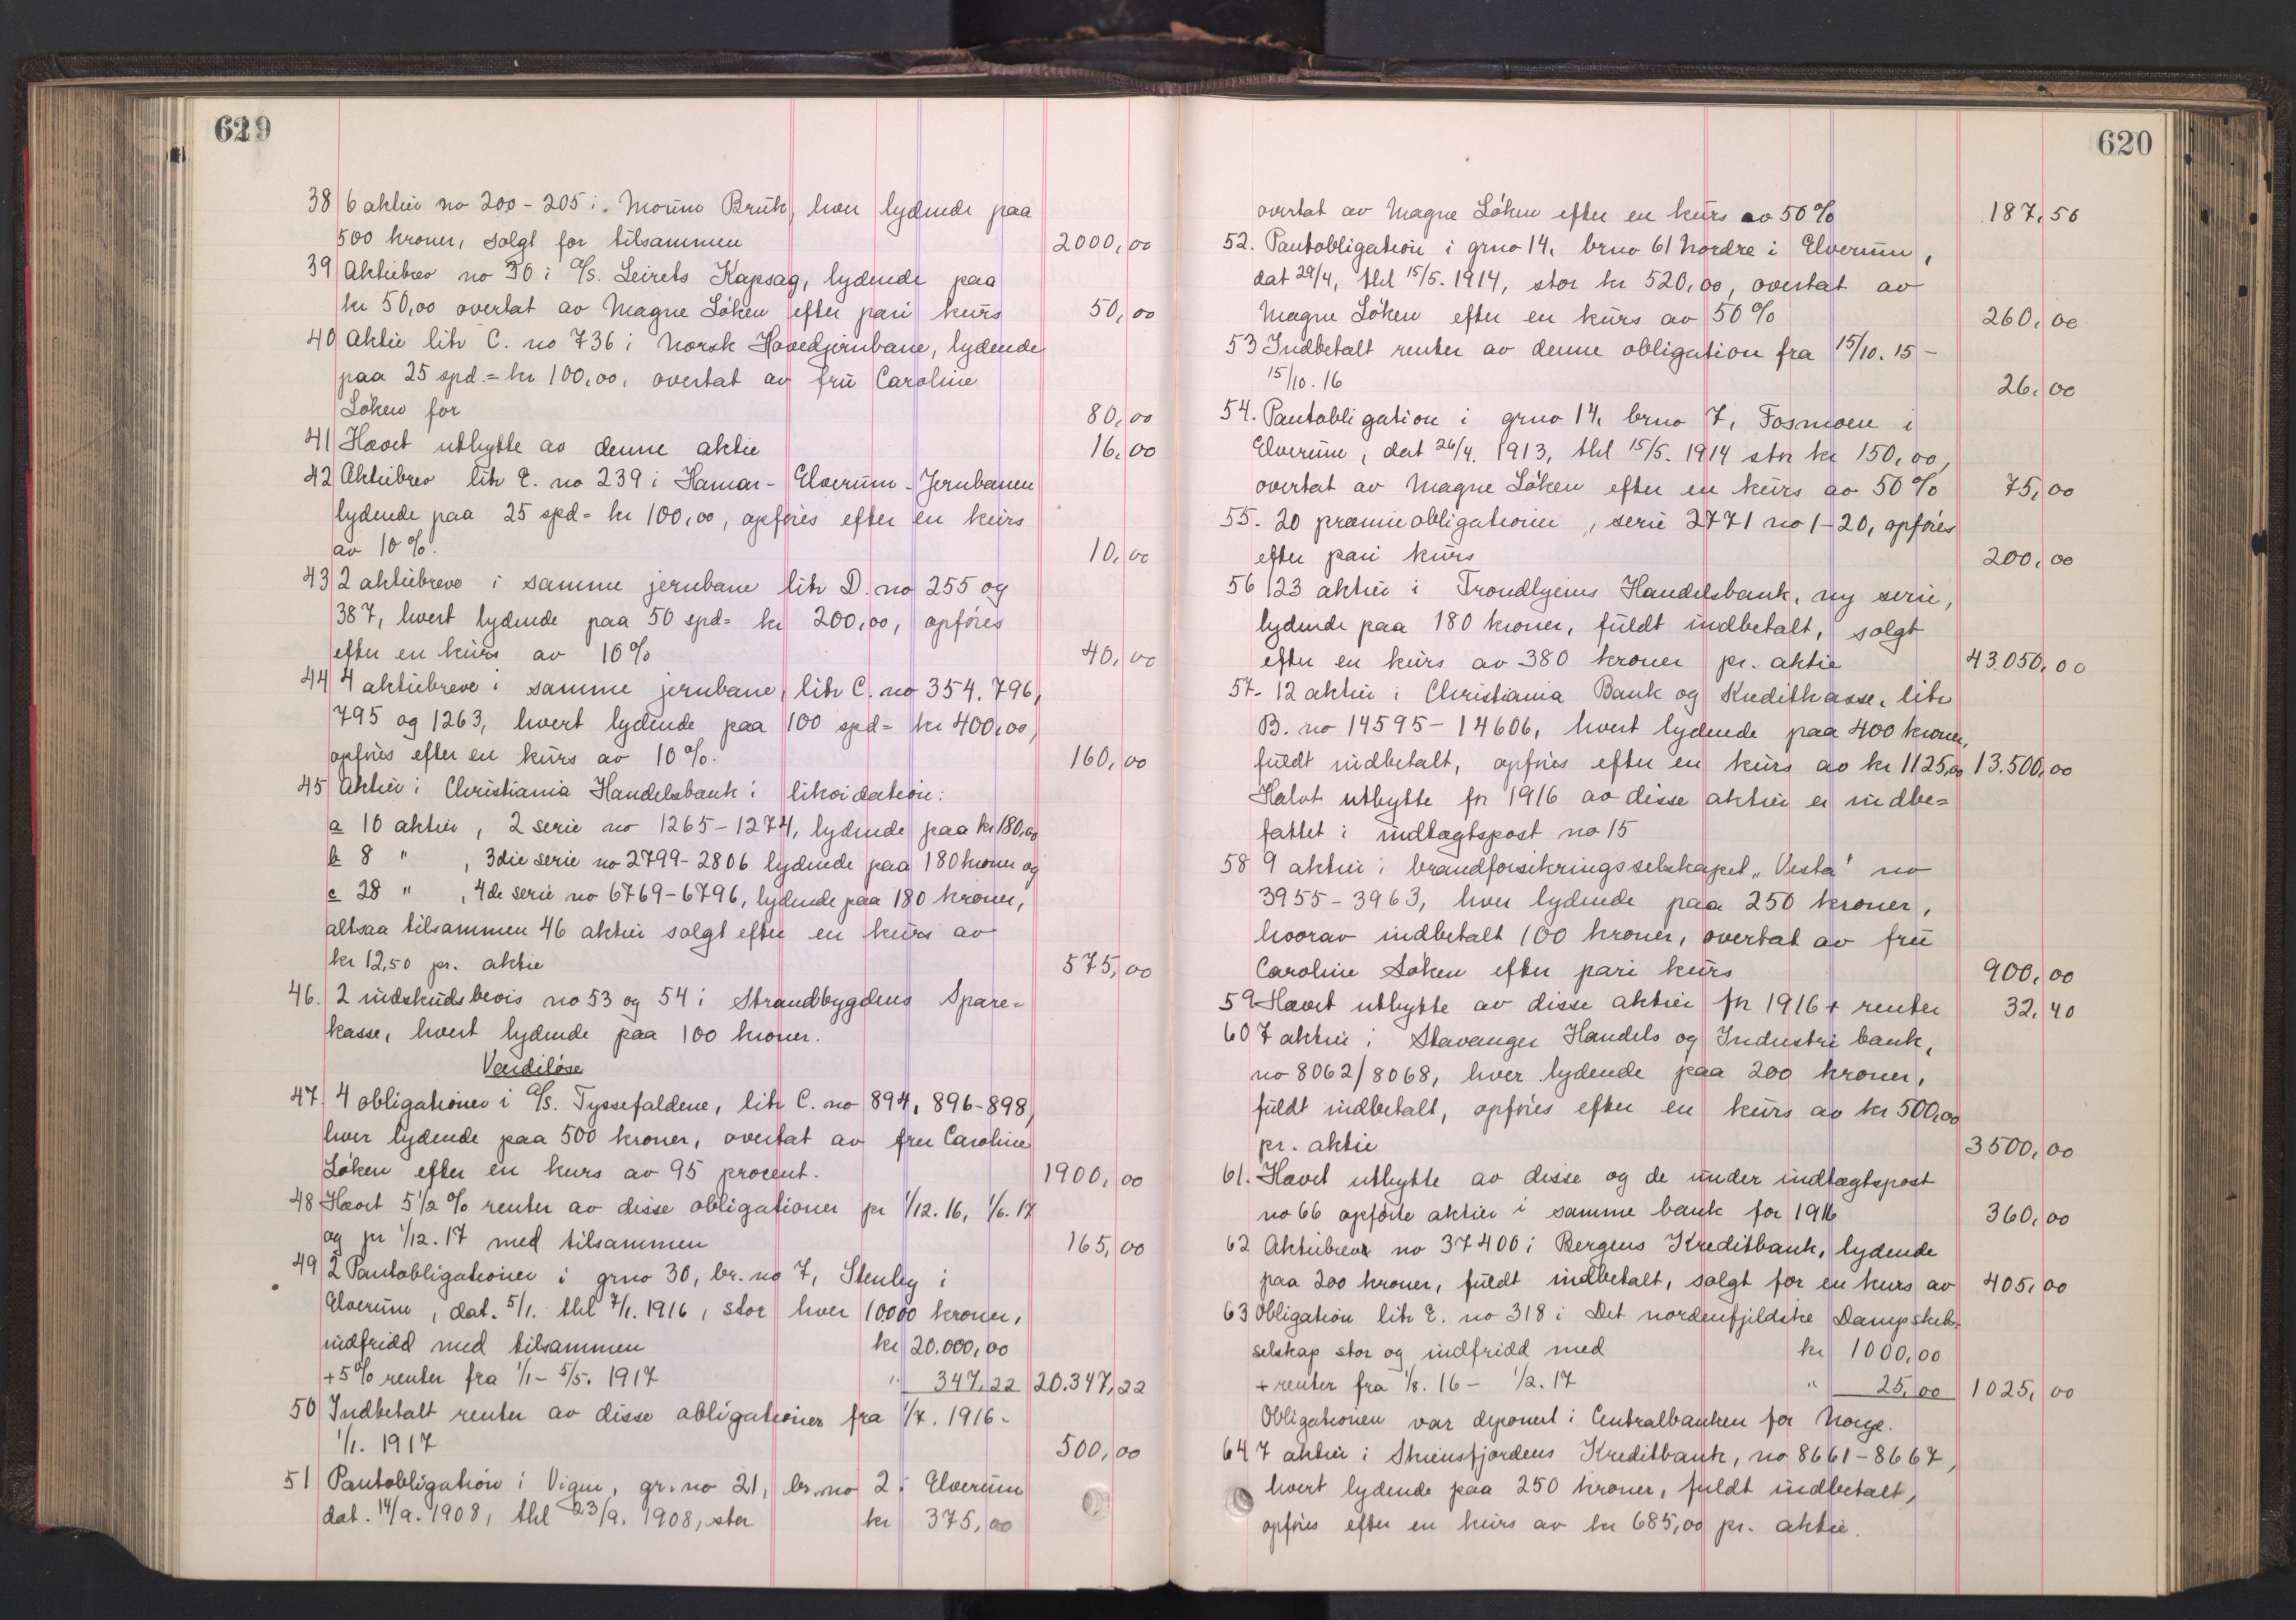 629
38 6 aktier no 200 - 205 i Moum Bruk, hver lydende paa
500 kroner, solgt for tilsammen 2000,00
39 Aktiebrev no 30 i A/S. Leirets Kapsag, lydende paa
kr 50,00 overtat av Magne Löken efter pari kurs 50,00
40 Aktie litr C. no 736 i Norsk Hovedjernbane, lydende
paa 25 spd. = kr 100,00, overtat av fru Caroline
Löken for 80,00
41 Hævet utbytte av denne aktie 16,00
42 Aktiebrev litr E. no 239 i Hamar - Elverum - Jernbanen
lydende paa 25 spd = kr 100,00, opföres efter en kurs
av 10 %. 10,00
43 2 aktiebreve i samme jernbane litr D. no 255 og
387, hvert lydende paa 50 spd = kr 200,00, opföres
efter en kurs av 10 % 40,00
44 4 aktiebreve i samme jernbane, litr C. no 354, 796,
795 og 1263, hvert lydende paa 100 spd = kr 400,00,
opföres efter en kurs av 10 %. 160,00
45 Aktier i Christiania Handelsbank i likvidation:
a 10 aktier, 2 serie no 1265 - 1274, lydende paa kr 180,00
b 8 " , 3die serie no 2799 - 2806 lydende paa 180 kroner og
c 28 " , 4de serie no 6769 - 6796, lydende paa 180 kroner,
altsaa tilsammen 46 aktier solgt efter en kurs av
kr 12,50 pr. aktie 575,00
46. 2 indskudsbevis no 53 og 54 i Strandbygdens Spare=
kasse, hvert lydende paa 100 kroner.
Værdilöse
47. 4 obligationer i A/S. Tyssefaldene, litr C. no 894, 896-898,
hver lydende paa 500 kroner, overtat av fru Caroline
Löken efter en kurs av 95 procent. 1900,00
48 Hævet 5 1/2 % renter av disse obligationer pr 1/12. 16, 1/6. 17
og pr 1/12. 17 med tilsammen 165,00
49 2 Pantobligationer i grno 30, br. no 7, Stenby i
Elverum, dat. 5/1. thl 7/1. 1916, stor hver 10.000 kroner,
indfridd med tilsammen kr 20.000,00
+ 5% renter fra 1/1 - 5/5. 1917 " 347,22 20.347,22
50 Indbetalt renter av disse obligationer fra 1/7. 1916 -
1/1. 1917 500,00
51 Pantobligation i Vigen, gr. no 21, br. no 2 i Elverum
dat. 14/9. 1908, thl 23/9. 1908, stor kr 375,00
620
overtat av Magne Löken efter en kurs av 50% 187,50
52. Pantobligation i grno 14, brno 61 Nordre i Elverum,
dat 29/4, thl 15/5. 1914, stor kr 520,00, overtat av
Magne Löken efter en kurs av 50 % 260,00
53 Indbetalt renter av denne obligation fra 15/10. 15 -
15/10. 16 26,00
54. Pantobligation i grno 14, brno 7, Fosmoen i
Elverum, dat 26/4. 1913, thl 15/5. 1914 stor kr 150,00,
overtat av Magne Löken efter en kurs av 50 % 75,00
55. 20 præmieobligationer, serie 2771 no 1-20, opföres
efter pari kurs 200,00
56 123 aktier i Trondhjems Handelsbank, ny serie,
lydende paa 180 kroner, fuldt indbetalt, solgt
efter en kurs av 380 kroner pr. aktie 43.050,00
57. 12 aktier i Christiania Bank og Kreditkasse, litr
B. no 14595 - 14606, hvert lydende paa 400 kroner,
fuldt indbetalt, opföres efter en kurs av kr 1125,00 13.500,00
Halvt utbytte for 1916 av disse aktier er indbe=
fattet i indtægtspost no 15
58 9 aktier i brandforsikringsselskapet „Vesta" no
3955 - 3963, hver lydende paa 250 kroner,
hvorav indbetalt 100 kroner, overtat av fru
Caroline Löken efter pari kurs 900,00
59 Hævet utbytte av disse aktier for 1916 + renter 32,40
60 7 aktier i Stavanger Handels og Industri bank,
no 8062/8068, hver lydende paa 200 kroner,
fuldt indbetalt, opföres efter en kurs av kr 500,00
pr. aktie 3500,00
61. Hævet utbytte av disse og de under indtægtspost
no 66 opförte aktier i samme bank for 1916 360,00
62 Aktiebrev no 37400 i Bergens Kreditbank, lydende
paa 200 kroner, fuldt indbetalt, solgt for en kurs av 405,00
63 Obligation litr E. no 318 i Det nordenfjeldske Dampskibs-
selskap stor og indfridd med kr 1000,00
+ renter fra 1/8. 16 - 1/2. 17 " 25,00 1025,00
Obligationen var deponert i Centralbanken for Norge.
64 7 aktier i Skiensfjordens Kreditbank, no 8661 - 8667,
hvert lydende paa 250 kroner, fuldt indbetalt,
opföres efter en kurs av kr 685,00 pr. aktie.